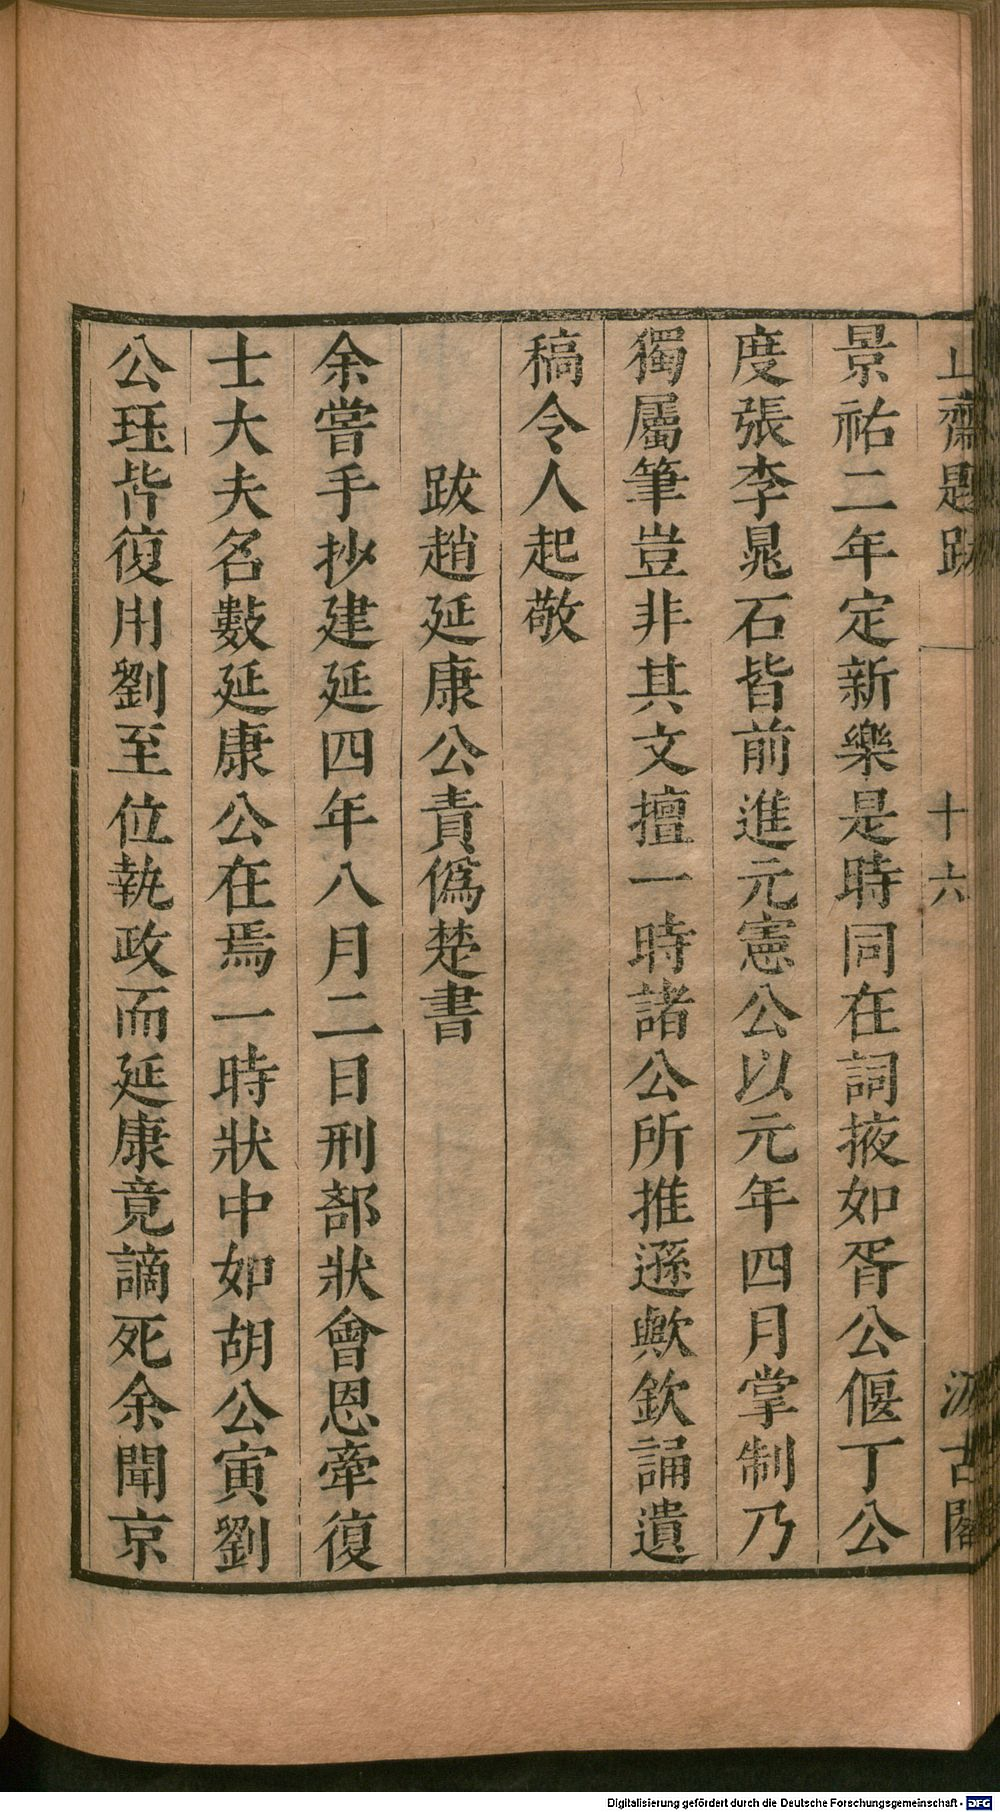 止齋題跋 十六 汲古閣
景祐二年定新樂是時同在詞掖如胥公偃丁公
度張李晁石皆前進元憲公以元年四月掌制乃
獨屬筆豈非其文擅一時諸公所推遜歟欽誦遺
稿令人起敬
跋趙延康公責僞楚書
余嘗手抄建延四年八月二日刑部狀會恩牽復
士大夫名數延康公在焉一時狀中如胡公寅劉
公珏皆復用劉至位執政而延康竟謫死余聞京
Digitalisierung gefördert durch die Deutsche Forschungsgemeinschaft - DFG